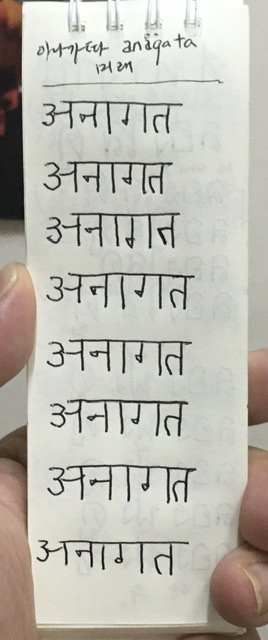 아나가따 anāgata
미래
अनागत
अनागत
अनागत
अनागत
अनागत
अनागत
अनागत
अनागत